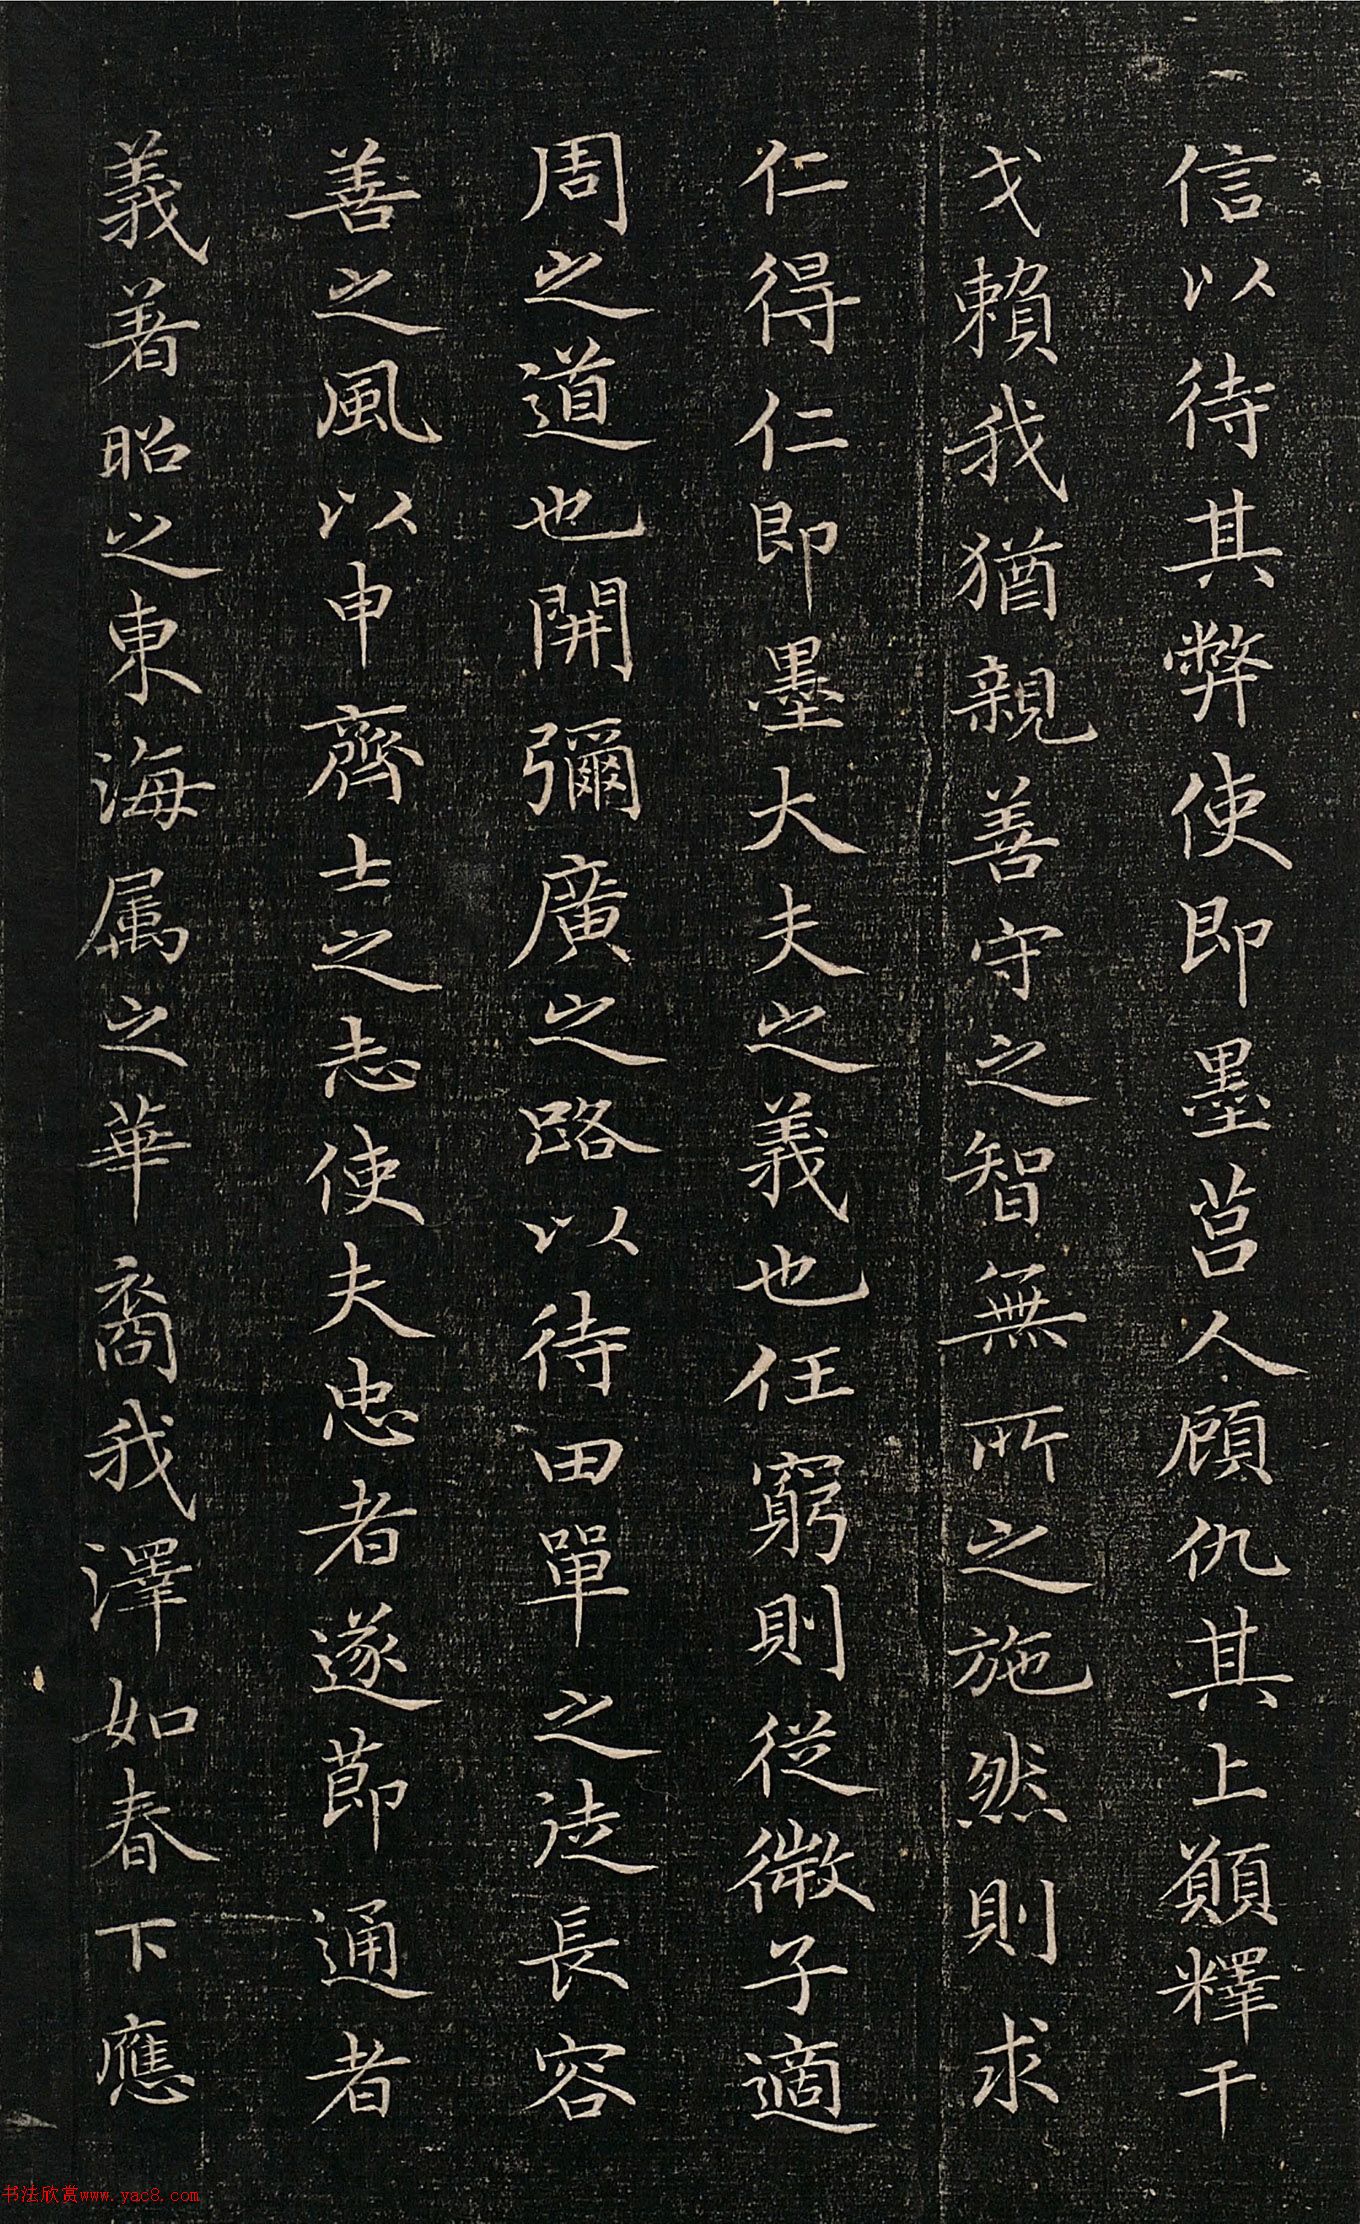 信以待其弊使即墨莒人顧仇其上願釋干
戈賴我猶親善守之智無所之施然則求
仁得仁即墨大夫之義也任窮則從微子適
周之道也開彌廣之路以待田單之徒長容
善之風以申齊士之志使夫忠者遂節通者
義著昭之東海属之華裔我澤如春下應
书法欣赏www.yac8.com